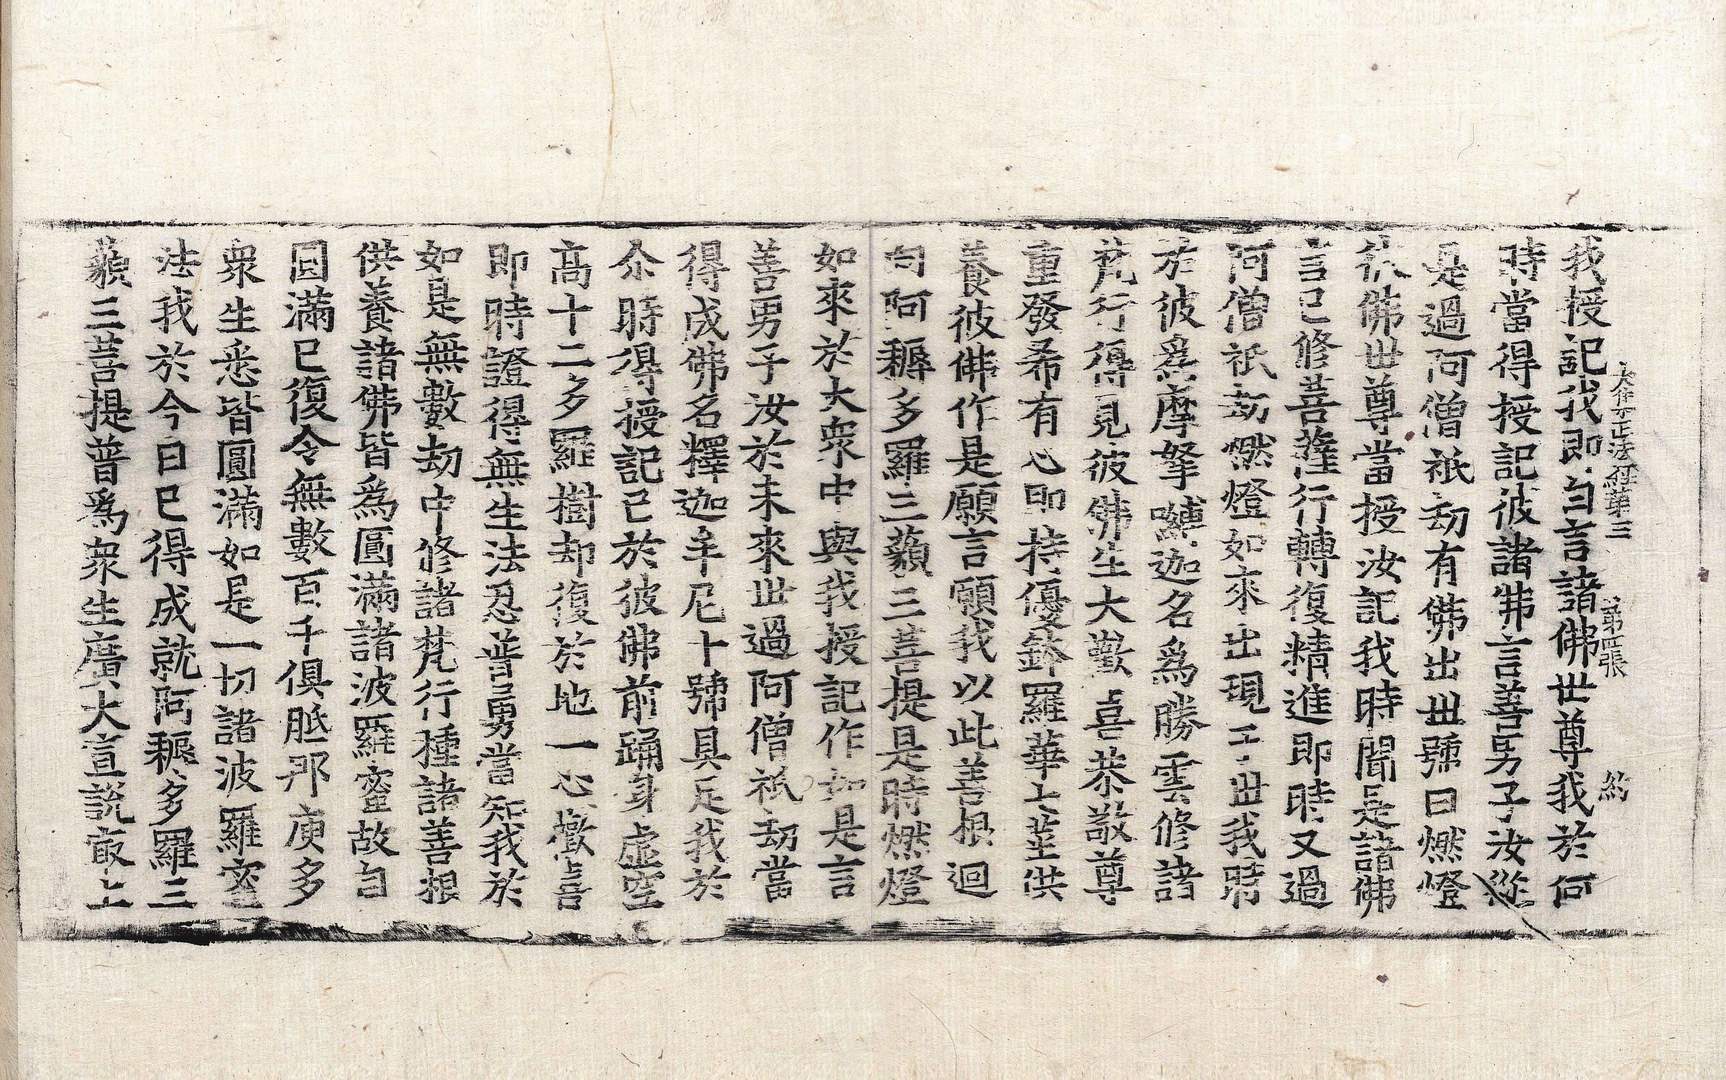 大乘大正法經第三 第四張 約
我授記我即白言諸佛世尊我於何
時當得授記彼諸佛言善男子汝從
是過阿僧祇劫有佛出世號曰燃燈
彼佛世尊當授汝記我時聞是諸佛
言已修菩薩行轉復精進即時又過
阿僧祇劫燃燈如來出現于世我時
於彼爲摩拏嚩迦名爲勝雲修諸
梵行得見彼佛生大歡喜恭敬尊
重發希有心即持優鉢羅華七莖供
養彼佛作是願言願我以此善根迴
向阿耨多羅三藐三菩提是時燃燈
如來於大衆中與我授記作如是言
善男子汝於未來世過阿僧祇劫當
得成佛名釋迦牟尼十號具足我於
尒時得授記已於彼佛前踊身虛空
高十二多羅樹却復於地一心歡喜
即時證得無生法忍普勇當知我於
如是無數劫中修諸梵行種諸善根
供養諸佛皆爲圓滿諸波羅蜜故自
圓滿已復令無數百千俱胝那庾多
衆生悉皆圓滿如是一切諸波羅蜜
法我於今日已得成就阿耨多羅三
藐三菩提普爲衆生廣大宣說㝡上